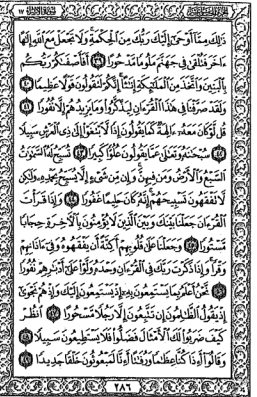 ذَٰلِكَ مِمَّا أَوْحَىٰ إِلَيْكَ رَبُّكَ مِنَ الْحِكْمَةِ وَلَا تَجْعَلْ مَعَ اللَّهِ إِلَٰهًا
ءَاخَرَ فَتُلْقَىٰ فِي جَهَنَّمَ مَلُومًا مَّدْحُورًا ٣٩ أَفَأَصْفَىٰكُمْ رَبُّكُم
بِالْبَنِينَ وَاتَّخَذَ مِنَ الْمَلَٰٓئِكَةِ إِنَٰثًا إِنَّكُمْ لَتَقُولُونَ قَوْلًا عَظِيمًا ٤٠
وَلَقَدْ صَرَّفْنَا فِي هَٰذَا الْقُرْءَانِ لِيَذَّكَّرُوا وَمَا يَزِيدُهُمْ إِلَّا نُفُورًا ٤١
قُل لَّوْ كَانَ مَعَهُۥٓ ءَالِهَةٌ كَمَا يَقُولُونَ إِذًا لَّابْتَغَوْا إِلَىٰ ذِي الْعَرْشِ سَبِيلًا
٤٢ سُبْحَٰنَهُۥ وَتَعَٰلَىٰ عَمَّا يَقُولُونَ عُلُوًّا كَبِيرًا ٤٣ تُسَبِّحُ لَهُ السَّمَٰوَٰتُ
السَّبْعُ وَالْأَرْضُ وَمَن فِيهِنَّ وَإِن مِّن شَيْءٍ إِلَّا يُسَبِّحُ بِحَمْدِهِۦ وَلَٰكِن
لَّا تَفْقَهُونَ تَسْبِيحَهُمْ إِنَّهُۥ كَانَ حَلِيمًا غَفُورًا ٤٤ وَإِذَا قَرَأْتَ
الْقُرْءَانَ جَعَلْنَا بَيْنَكَ وَبَيْنَ الَّذِينَ لَا يُؤْمِنُونَ بِالْءَاخِرَةِ حِجَابًا
مَّسْتُورًا ٤٥ وَجَعَلْنَا عَلَىٰ قُلُوبِهِمْ أَكِنَّةً أَن يَفْقَهُوهُ وَفِيٓ ءَاذَانِهِمْ
وَقْرًا وَإِذَا ذَكَرْتَ رَبَّكَ فِي الْقُرْءَانِ وَحْدَهُۥ وَلَّوْا عَلَىٰٓ أَدْبَٰرِهِمْ نُفُورًا
٤٦ نَّحْنُ أَعْلَمُ بِمَا يَسْتَمِعُونَ بِهِۦٓ إِذْ يَسْتَمِعُونَ إِلَيْكَ وَإِذْ هُمْ نَجْوَىٰٓ
إِذْ يَقُولُ الظَّٰلِمُونَ إِن تَتَّبِعُونَ إِلَّا رَجُلًا مَّسْحُورًا ٤٧ انظُرْ
كَيْفَ ضَرَبُوا لَكَ الْأَمْثَالَ فَضَلُّوا فَلَا يَسْتَطِيعُونَ سَبِيلًا ٤٨
وَقَالُوٓا أَءِذَا كُنَّا عِظَٰمًا وَرُفَٰتًا أَءِنَّا لَمَبْعُوثُونَ خَلْقًا جَدِيدًا ٤٩
٢٨٦